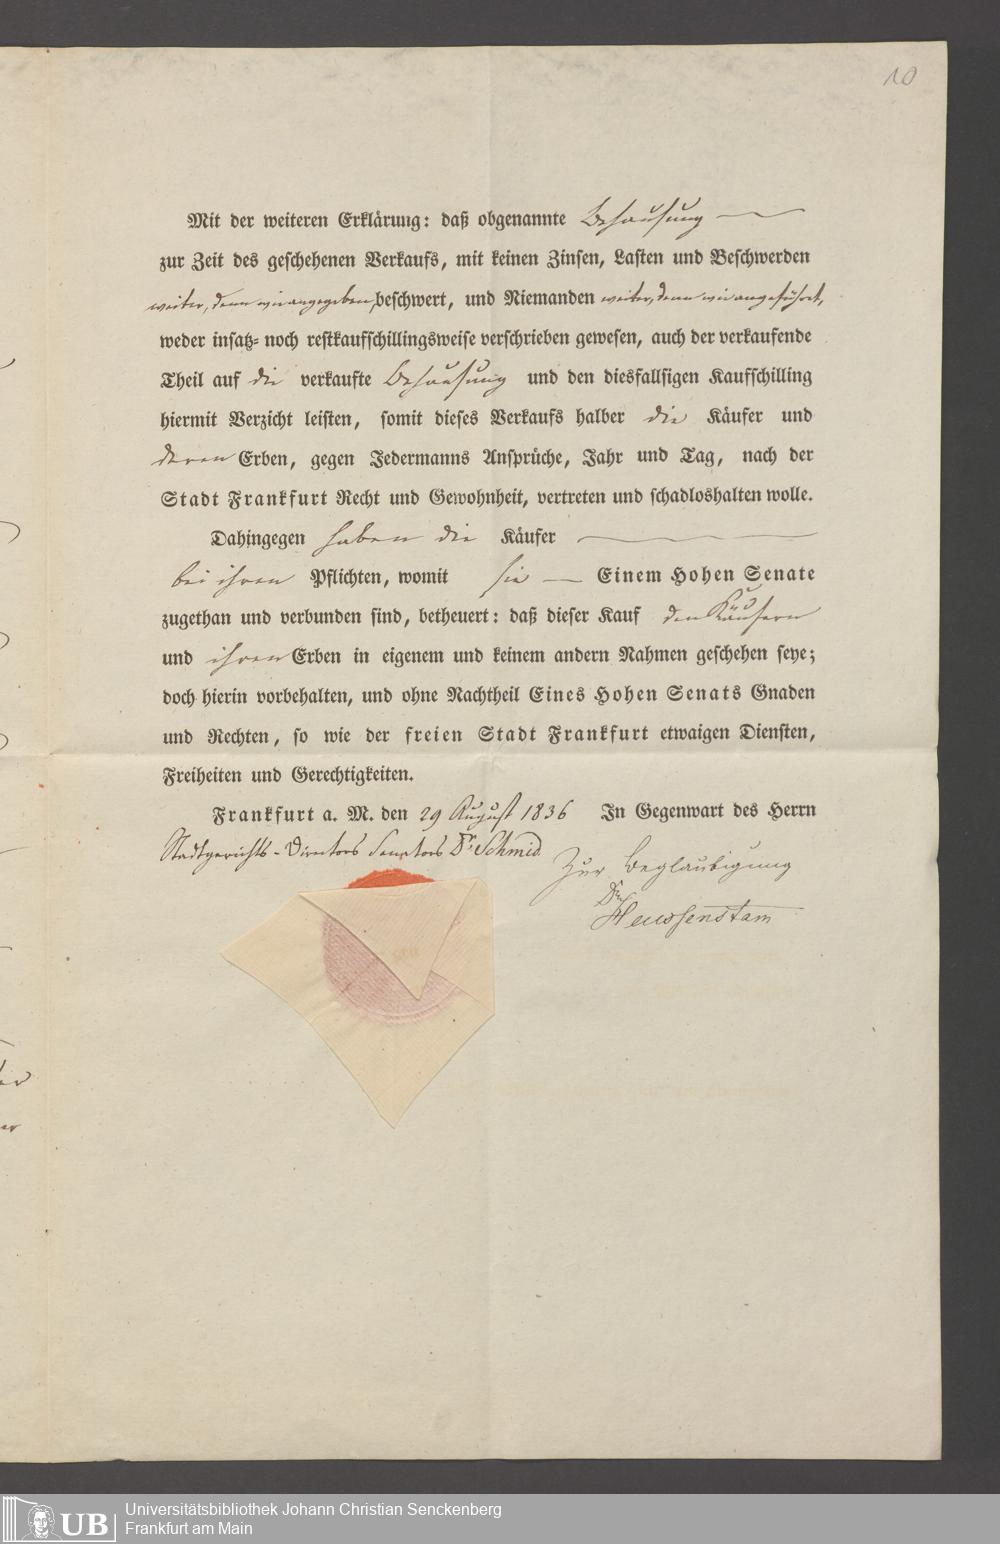 10
Mit der weiteren Erklärung: daß obgenannte Behausung
zur Zeit des geschehenen Verkaufs, mit keinen Zinsen, Lasten und Beschwerden
weiter, denn wie angegeben, beschwert, und Niemanden weiter, denn wie angeführt,
weder insatz- noch restkaufschillingsweise verschrieben gewesen, auch der verkaufende
Theil auf die verkaufte Behausung und den diesfallsigen Kaufschilling
hiermit Verzicht leisten, somit dieses Verkaufs halber die Käufer und
deren Erben, gegen Jedermanns Ansprüche, Jahr und Tag, nach der
Stadt Frankfurt Recht und Gewohnheit, vertreten und schadloshalten wolle.
Dahingegen haben die Käufer
bei ihren Pflichten, womit sie Einem Hohen Senate
zugethan und verbunden sind, betheuert: daß dieser Kauf den Käufern
und ihren Erben in eigenem und keinem andern Nahmen geschehen seye;
doch hierin vorbehalten, und ohne Nachtheil Eines Hohen Senats Gnaden
und Rechten, so wie der freien Stadt Frankfurt etwaigen Diensten,
Freiheiten und Gerechtigkeiten.
Frankfurt a. M. den 29 August 1836 In Gegenwart des Herrn
Stadtgerichts-Directors Senators Dr. Schmid
Zur Beglaubigung
Dr. Heussenstam
UB
Universitätsbibliothek Johann Christian Senckenberg
Frankfurt am Main